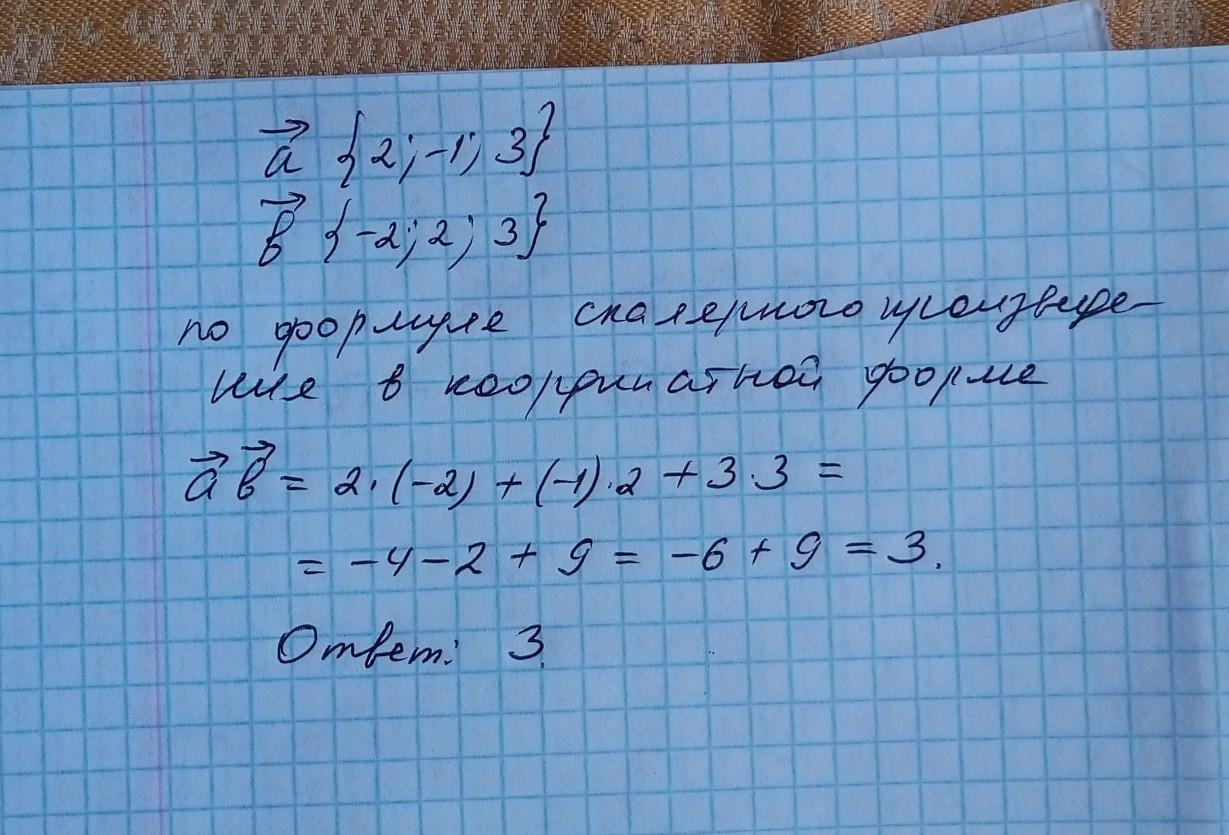 a⃗ {2; -1; 3}
в⃗ {-2; 2; 3}
по формуле скалярного произведе-
ния в координатной форме
a⃗ в⃗ = 2·(-2) + (-1)·2 + 3·3 =
= -4-2 + 9 = -6 + 9 = 3.
Ответ: 3.